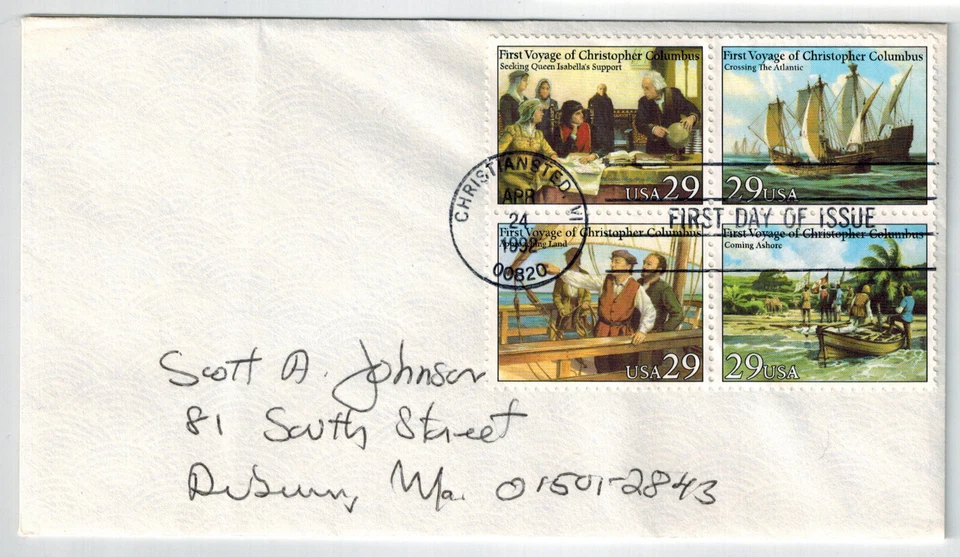 First Voyage of Christopher Columbus
Seeking Queen Isabella's Support
USA 29
First Voyage of Christopher Columbus
Crossing The Atlantic
29 USA
CHRISTIANSTED VI
APR
24
1992
00820
FIRST DAY OF ISSUE
First Voyage of Christopher Columbus
Land
USA 29
First Voyage of Christopher Columbus
Coming Ashore
29 USA
Scott A. Johnson
81 South Street
Ma. 01501-2843